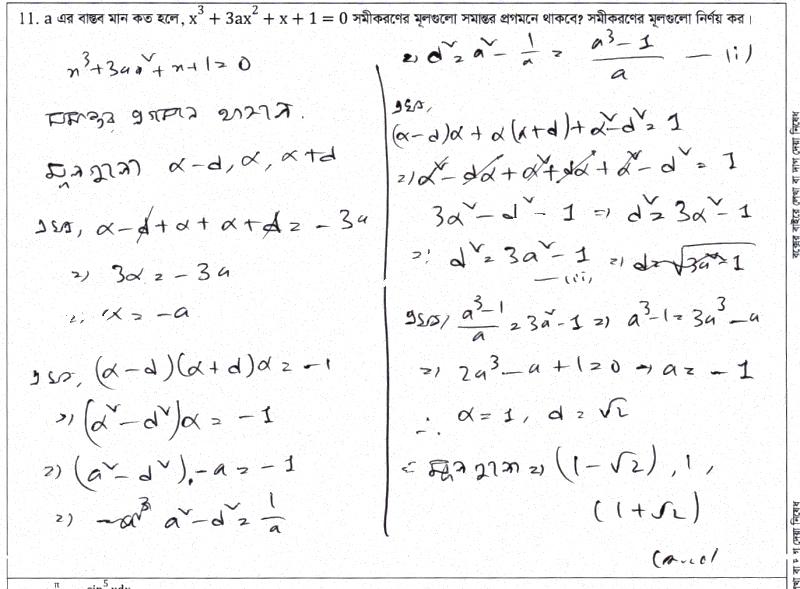 11. a এর বাস্তব মান কত হলে, x³ + 3ax² + x + 1 = 0 সমীকরণের মূলগুলো সমান্তর প্রগমনে থাকবে? সমীকরণের মূলগুলো নির্ণয় কর।
x³ + 3ax² + x + 1 = 0
সমান্তর প্রগমনে থাকলে.
মূলগুলো α-d, α, α+d
এখন, α-d + α + α + d = -3a
⇒ 3α = -3a
∴ α = -a
এখন, (α-d)(α+d)α = -1
⇒ (α² - d²)α = -1
⇒ (a² - d²).-a = -1
⇒ a² - d² = 1/a
⇒ d² = a² - 1/a = (a³-1)/a — (i)
এখন,
(α-d)α + α(α+d) + α²-d² = 1
⇒ α² - dα + α² + dα + α² - d² = 1
3α² - d² - 1 ⇒ d² = 3α² - 1
∴ d² = 3a² - 1 — (ii) ⇒ d = √3a²-1
এখন, (a³-1)/a = 3a² - 1 ⇒ a³-1 = 3a³ - a
⇒ 2a³ - a + 1 = 0 → a = -1
∴ α = 1, d = √2
∴ মূলগুলো ⇒ (1-√2), 1,
(1+√2)
বক্সের বাইরে লেখা বা দাগ দেয়া নিষেধ